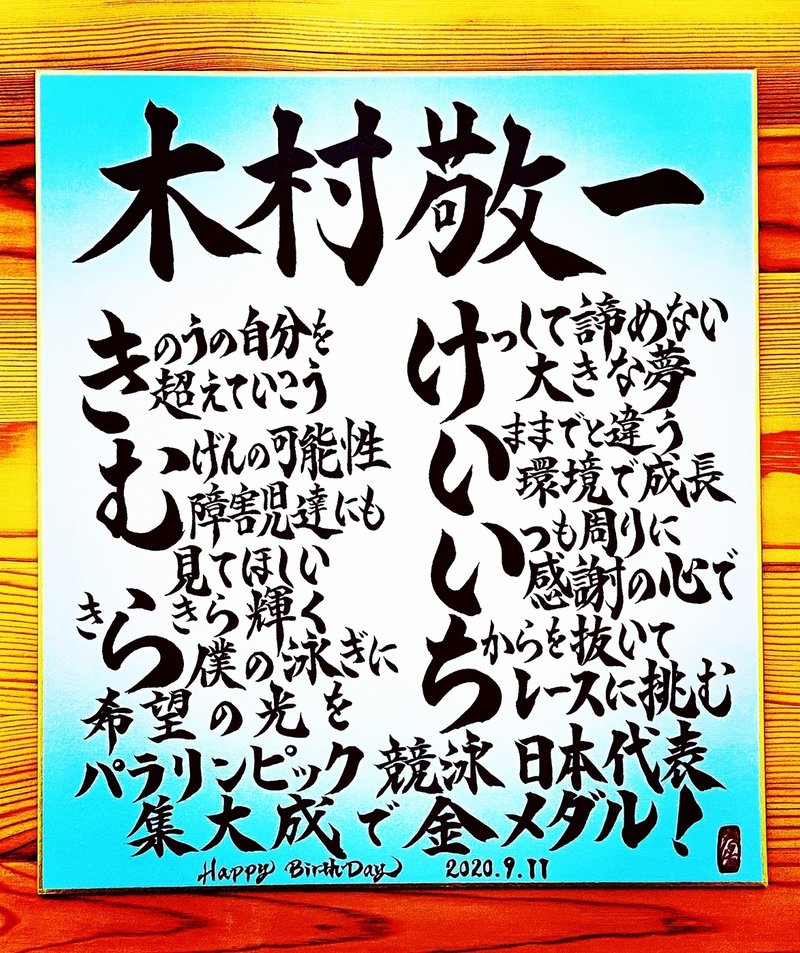 木村敬一
きのうの自分を
超えていこう
むげんの可能性
障害児達にも
見てほしい
きらきら輝く
僕の泳ぎに
希望の光を
けっして諦めない
大きな夢
いままでと違う
環境で成長
いつも周りに
感謝の心で
ちからを抜いて
レースに挑む
パラリンピック 競泳 日本代表
集大成で金メダル!
Happy BirthDay 2020.9.11